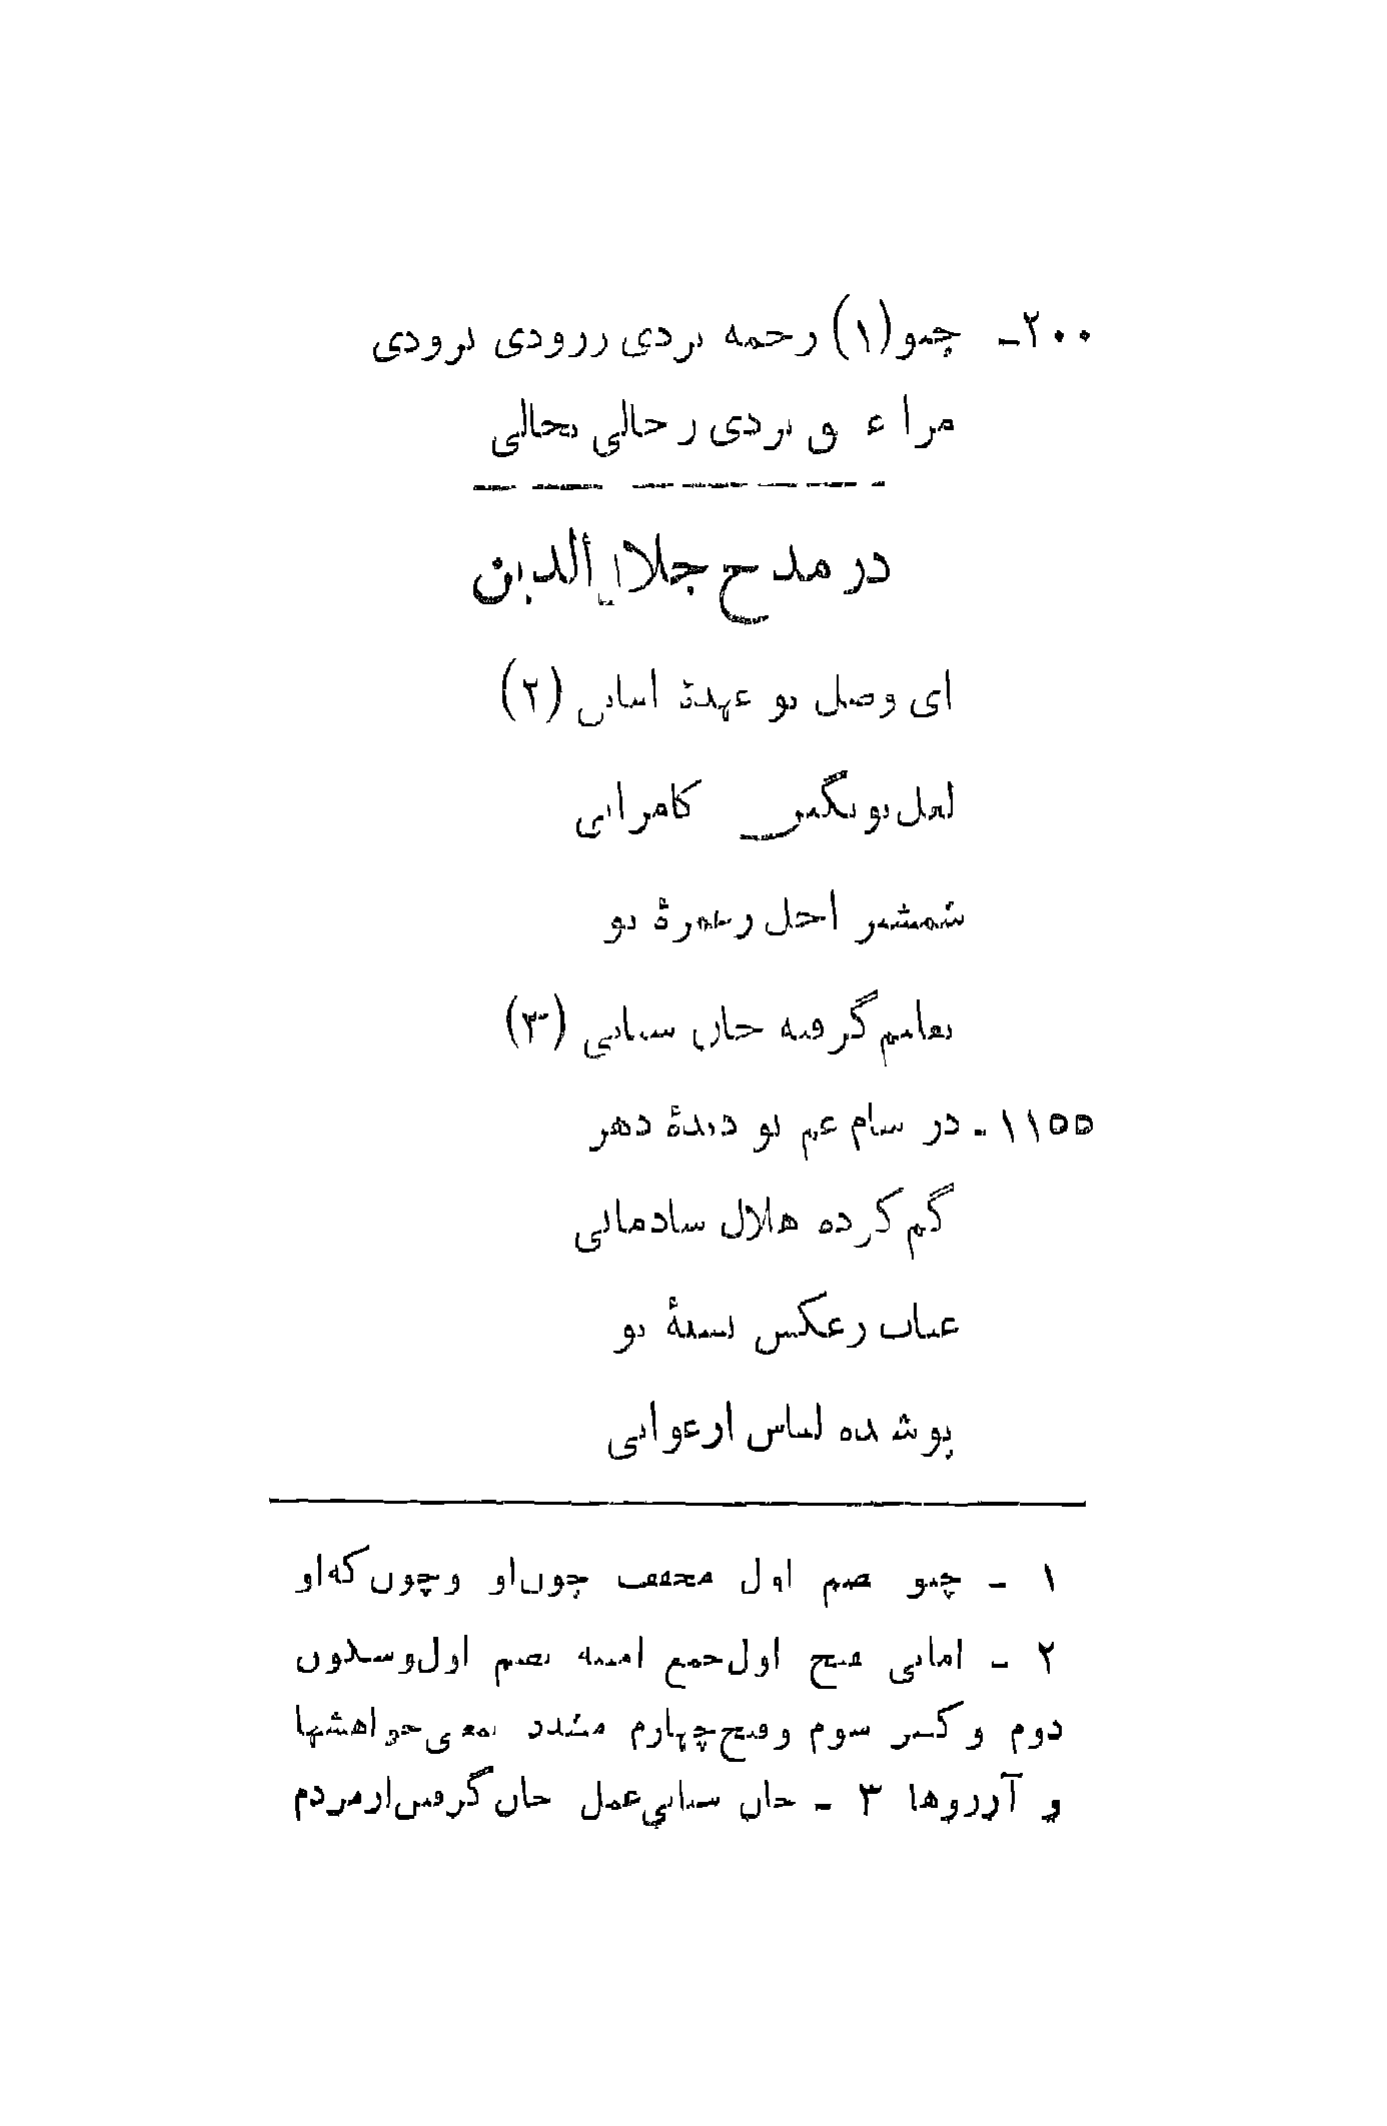 ۲۰۰- چنو(۱) زخمه بردی زرودی برودی
مرا ع ق بردی ز حالی بحالی
در مدح جلال الدین
ای وصل تو عهدۀ امانی (۲)
لعل تو نگین کامرانی
شمشیر اجل ز غمزۀ تو
تعلیم گرفته جان ستانی (۳)
۱۱۵۵- در شام غم تو دیدۀ دهر
گم کرده هلال شادمانی
عناب ز عکس پستۀ تو
پوشیده لباس ارغوانی
۱ - چنو بضم اول مخفف چون‌او و چون‌که‌او
۲ - امانی بفتح اول جمع امنیه بضم اول و سکون
دوم و کسر سوم و فتح چهارم مشدد بمعنی خواهشها
و آرزوها ۳ - جان ستانی عمل جان گرفتن از مردم